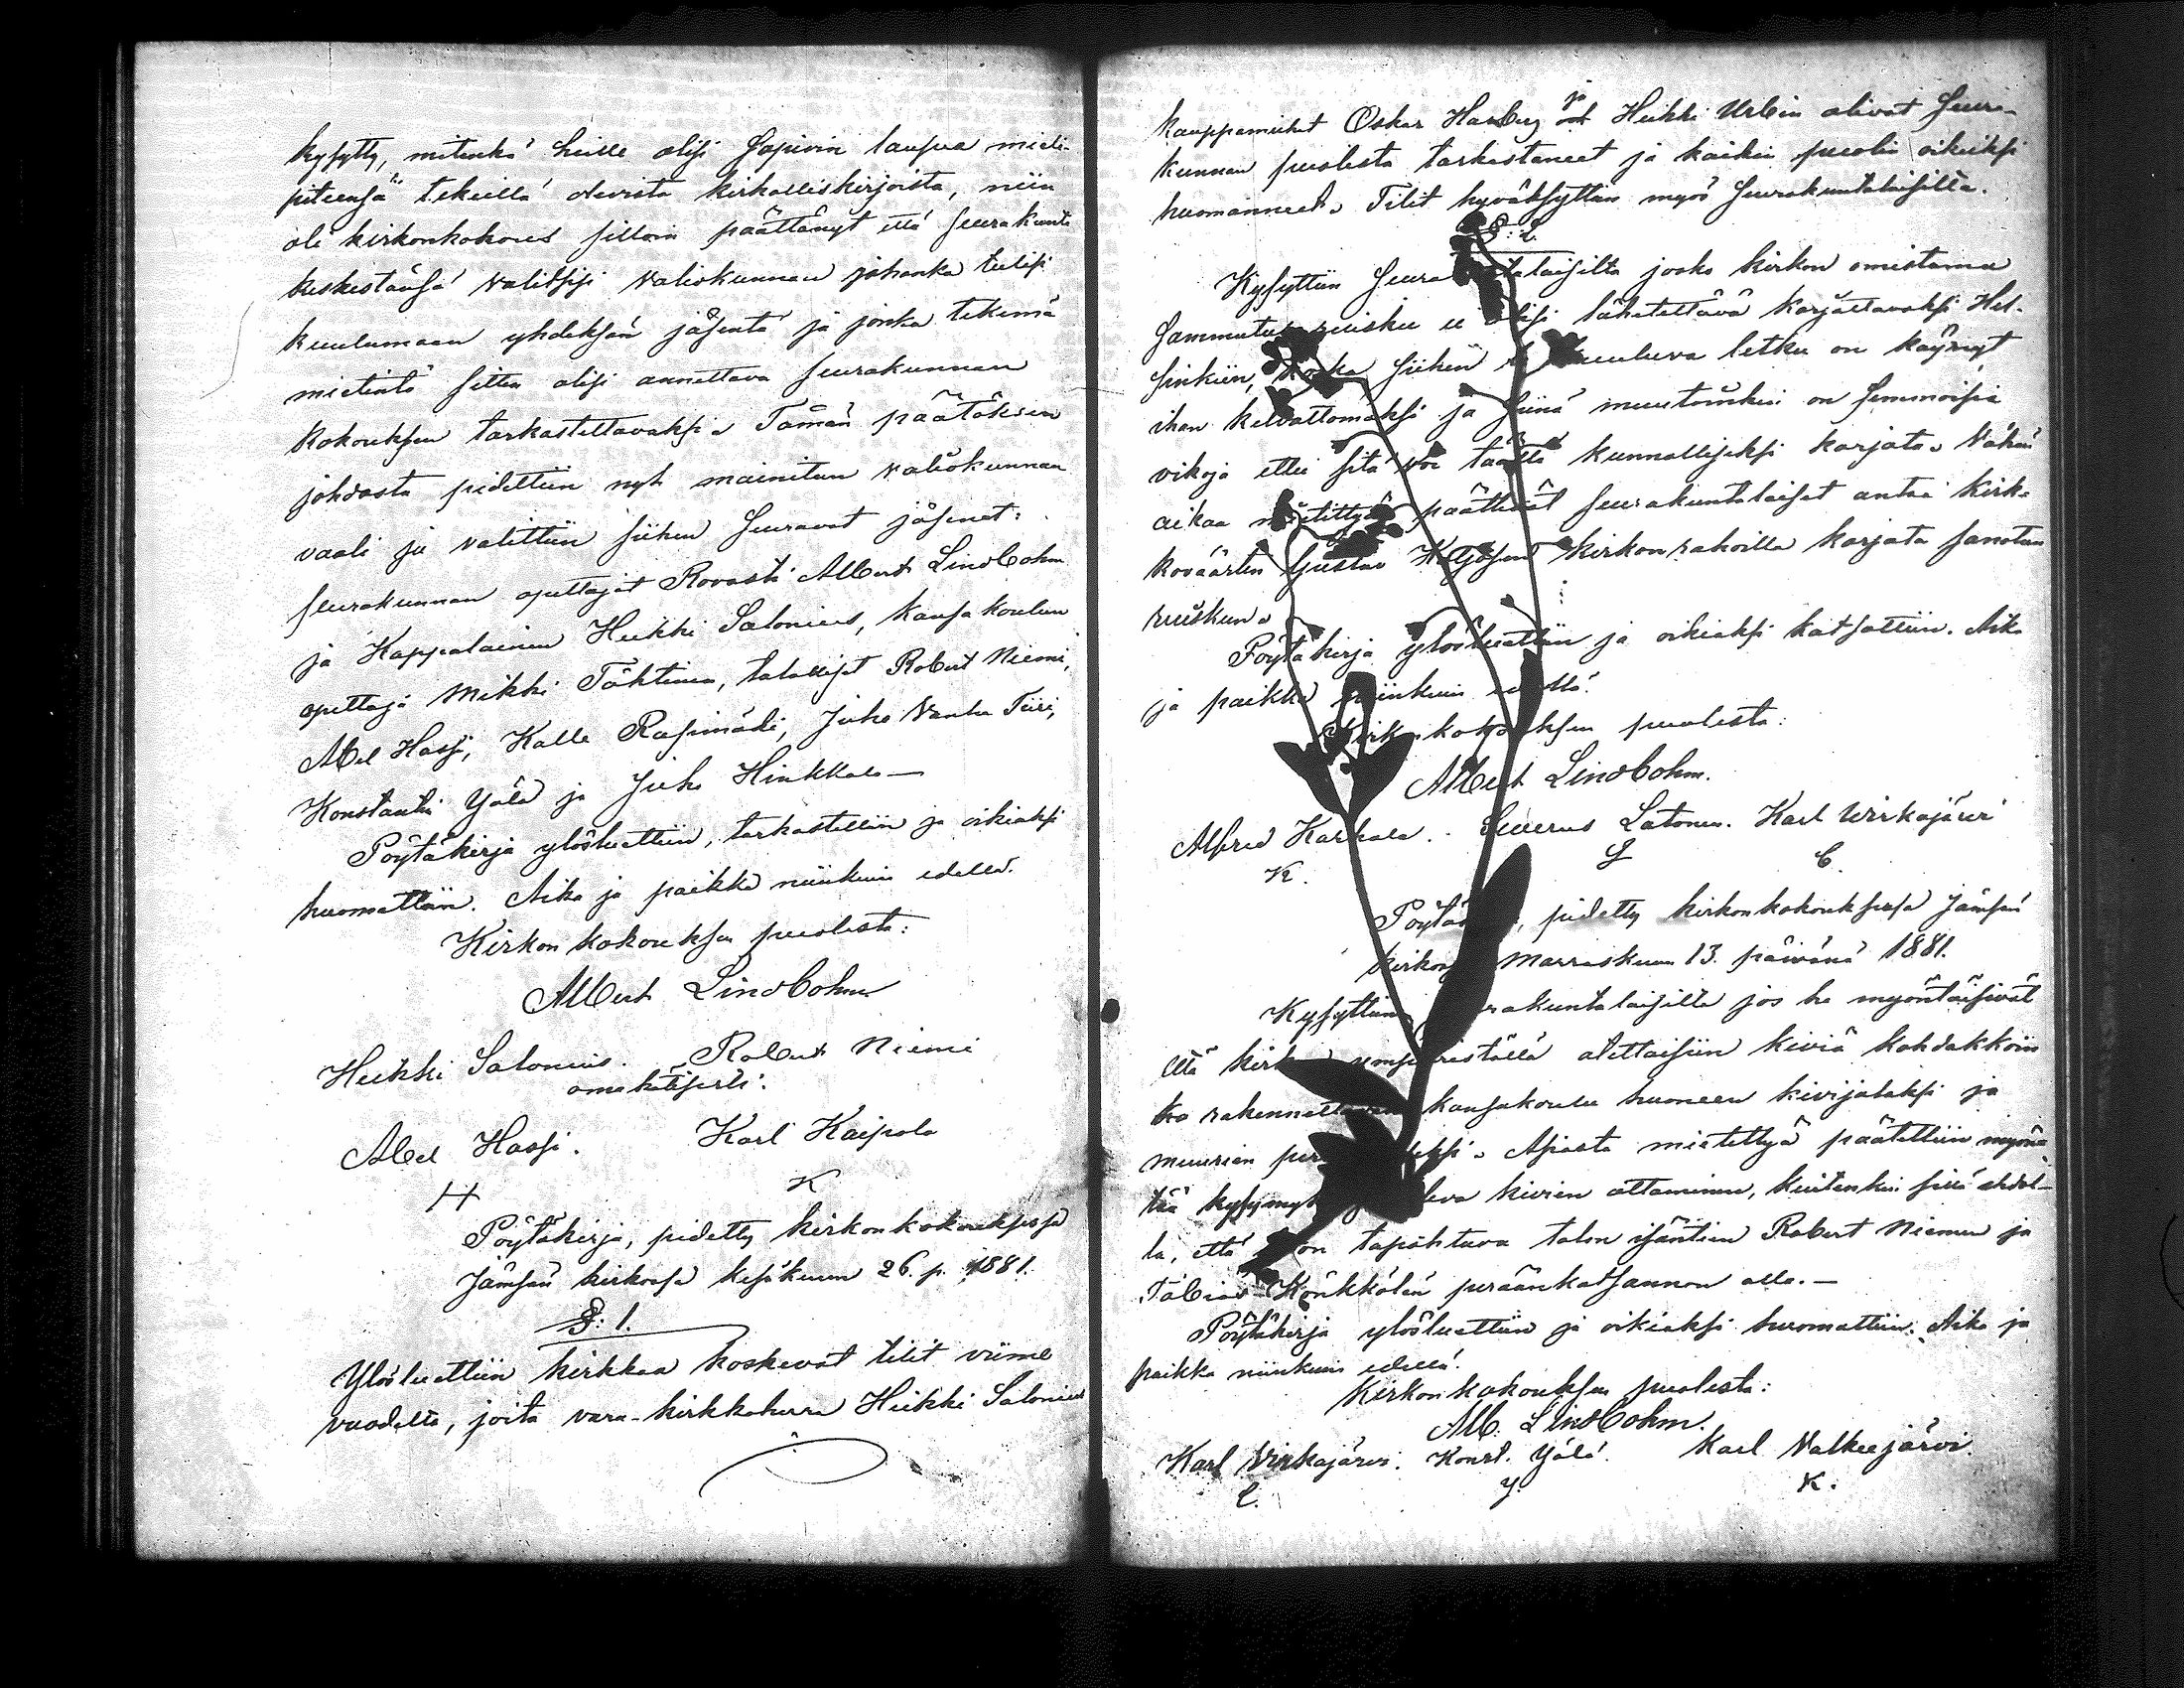 kysytty, mitenkä heille olisi sopivin lausua mieli-
piteensä tekeillä olevista kirkolliskirjoista, niin
oli kirkonkokous silloin päättänyt että seurakunta
keskestänsä valitsisi valiokunnan johonka tulisi
kuulumaan yhdeksän jäsentä ja jonka tekemä
mietintö sitten olisi annettava seurakunnan
kokouksen tarkastettavaksi. Tämän päätöksen
johdosta pidettiin nyt mainitun valiokunnan
vaali ja valittiin siihen seuraavat jäsenet:
seurakunnan opettajat Rovasti Albert Lindbohm
ja Kappalainen Heikki Salonius, kansakoulun
opettaja Mikki Tähtinen, talolliset Robert Niemi,
Abel Hassi, Kalle Rasinmäki, Juho Vanha Tiiri,
Konstantin Ylä ja Juho Hinkkala —
Pöytäkirja ylösluettiin, tarkastettiin ja oikiaksi
huomattiin. Aika ja paikka niinkuin edellä.
Kirkonkokouksen puolesta:
Albert Lindbohm
Heikki Salonius. Robert Niemi
omakätisesti.
Abel Hassi. Karl Kaipola
H K
Pöytäkirja, pidetty kirkonkokouksessa
Jämsän kirkossa kesäkuun 26. p. 1881.
§: 1.
Ylösluettiin kirkkoa koskevat tilit viime
vuodelta, joita vara-kirkkoherra Heikki Salonius
kauppamiehet Oskar Harberg ja Heikki Urbin olivat seura-
kunnan puolesta tarkastaneet ja kaikin puolin oikeiksi
huomanneet. Tilit hyväksyttiin myös seurakuntalaisilta.
§: 2.
Kysyttiin seurakuntalaisilta josko kirkon omistama
sammutusruisku ei olisi lähetettävä korjattavaksi Hel-
sinkiin, koska siihen kuuluva letku on käynyt
ihan kelvottomaksi ja siinä muutoinkin on semmoisia
vikoja ettei sitä voi täällä kunnolliseksi korjata. Vähän
aikaa mietittyä päättivät seurakuntalaiset antaa kirk-
koväärtin Gustav kirkon rahoilla korjata sanotun
ruiskun.
Pöytäkirja ylösluettiin ja oikiaksi katsottiin. Aika
ja paikka niinkuin edellä.
Kirkonkokouksen puolesta:
Albert Lindbohm.
Alfred Karkala. Severus Latonen. Karl Wirkajärvi
K. L C.
Pöytäkirja, pidetty kirkonkokouksessa Jämsän
kirkossa Marraskuun 13. päivänä 1881.
Kysyttiin seurakuntalaisilta jos he myöntäisivät
että kirkon ympäristöllä otettaisiin kiviä kahdakkoin
ko rakennettavan kansakoulu huoneen kivijalaksi ja
muurien Asiasta mietittyä päätettiin myön-
tää kysymyksessä oleva kivien ottaminen, kuitenkin sillä ehdol-
la, että se on tapahtuva talon isäntien Robert Niemen ja
Tobias Könkkölän peräänkatsannon alla. —
Pöytäkirja ylösluettiin ja oikiaksi huomattiin. Aika ja
paikka niinkuin edellä.
Kirkonkokouksen puolesta:
Alb. Lindbohm.
Karl Virkajärvi. Konst. Ylä. Karl Valkeejärvi.
C. Y. K.